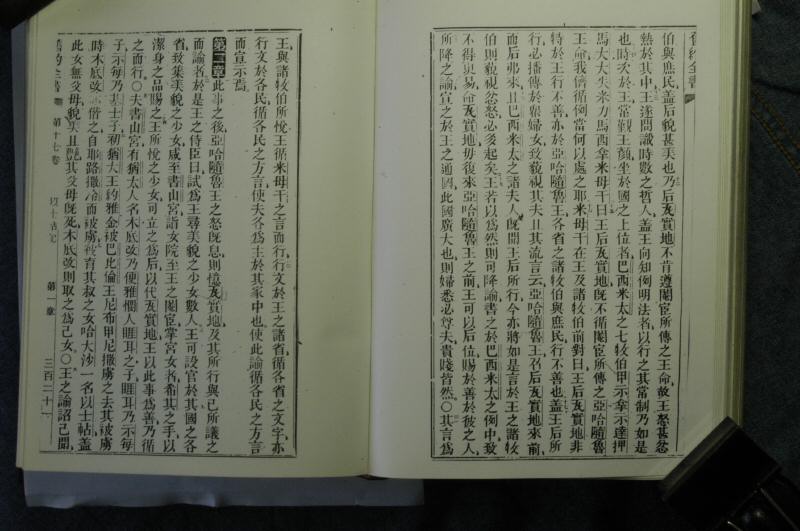 舊約全書
伯與庶民蓋后貌甚美也乃后瓦實地不肯遵閹宦所傳之王命故王怒甚忿
熱於其中王遂問識時數之哲人蓋王向知例明法者以行之其常制乃如是
也時次於王常觀王顏坐於國之上位者巴西米太之七牧伯甲示拿示達押
馬大大失米力馬西拿米母干曰王后瓦實地既不循閹宦所傳之亞哈隨魯
王命我儕循例當何以處之耶米母干在王及諸牧伯前對曰王后瓦實地非
特於王行不善亦於亞哈隨魯王各省之諸牧伯與庶民行不善也蓋王后所
行必播傳於眾婦女致藐視其夫且其流言云亞哈隨魯王召后瓦實地來前
而后弗來且巴西米太之諸夫人既聞王后所行今亦將如是言於王之諸牧
伯則藐視忿怒必多起矣王若以為然則可降諭書之於巴西米太之例中致
不得更易命瓦實地毋復來亞哈隨魯王之前王可以后位賜於善於彼之人
所降之諭宣之於王之通國此國廣大也則婦悉必尊夫貴賤皆然○其言為
王與諸牧伯所悅王循米母干之言而行行文於王之諸省循各省之文字亦
行文於各民循各民之方言使夫各為主於其家中也使此諭循各民之方言
而宣示焉
第二章此事之後亞哈隨魯王之怒既息則憶瓦實地及其所行與已所議之
而諭者於是王之侍臣曰試為王尋美貌之少女數人王可設官於其國之各
省致集美貌之少女咸至書山宮詣女院至王之閹宦掌宮女者希其之手以
潔身之品賜之王所悅之少女可立之為后以代瓦實地王以此事為善乃循
之而行○夫書山宮有猶太人名木底改乃便雅憫人睚耳之子睚耳乃示每
子示每乃其士子初猶大王約雅金被巴比倫王尼布甲尼撒虜之去其被虜
時木底改亦偕之自耶路撒冷而被虜彼育其叔之女哈大沙一名以士帖蓋
此女無父母貌美且艷其父母既死木底改則取之為己女○王之諭詔已聞
舊約全書 第十七卷 以士帖記 第一章 三百二十一